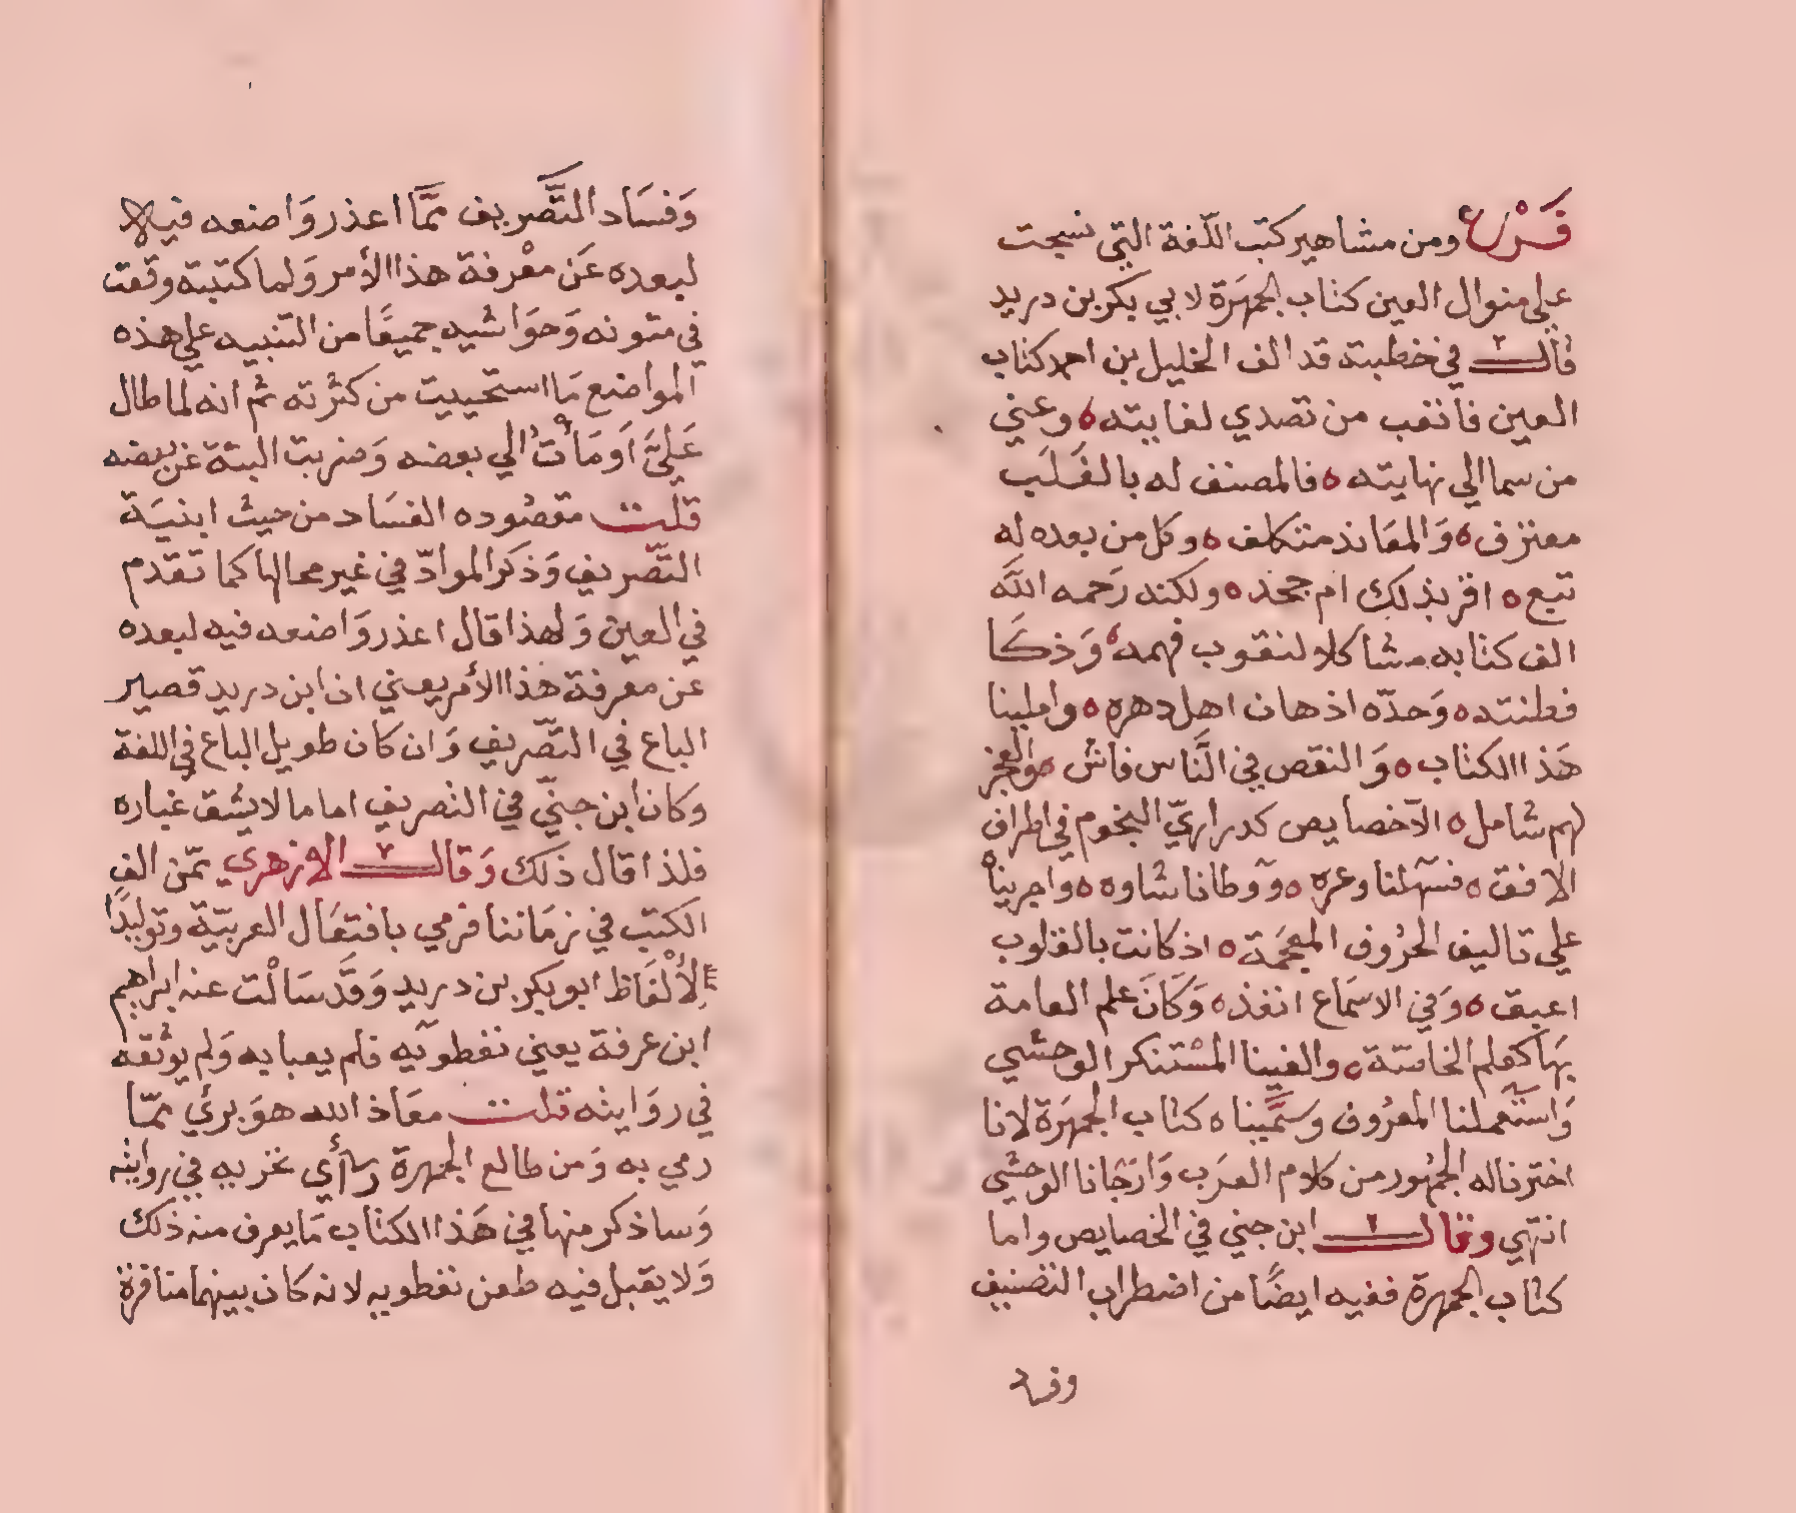 فَرْع ومن مشاهير كتب اللّغة التي نسجت
علي منوال العين كتاب الجمهَرة لابي بكر بن دريد
قال في خطبته قد الف الخليل بن احمد كتاب
العين فاتعب من تصدي لغايته ه وعني
من سما الي نهايته ه فالمصنف له بالغَلَب
معترف ه وَالمعَاند متكلف ه وكل من بعده له
تبع ه اقر بذلك ام جحد ه ولكنه رَحمه اللّه
الف كتابه مشاكلا لثقوب فهمه ه وَذكَا
فطنته ه وَحدّه اذهان اهل دهره ه واملينا
هَذا الكتاب ه وَالنقص في النَّاس فاش ه والعجز
لهم شامل ه الّا خصايص كدراريّ النجوم في اطراف
الافق ه فسهّلنا وعره ه ووطانا شاوه ه واجريناه
علي تاليف الحرُوف المعجَمة ه اذ كانت بالقلوب
اعبق ه وَفي الاسمَاع انفذ ه وَكَانَ علم العامة
بهَا كعلم الخاصّة ه والغينا المسْتنكر الوحشي
وَاستَعملنا المعرُوف وَسمَّيناه كتاب الجمهَرة لانا
اخترنا له الجمهُور من كلام العرَب وَارجَانا الوحشي
انتهي وقال ابن جني في الخصايص واما
كتاب الجمهرة ففيه ايضًا من اضطراب التصنيف
وفساد
وَفسَاد التَّصريف ممَّا اعذر وَاضعه فيه
لبعده عَن معْرفة هذا الأمر وَلما كتبته وقعت
في متونه وَحوَاشيه جميعًا من التنبيه علي هذه
المواضع مَا استحييت من كثرته ثم انه لما طال
عَليَّ اَومَأت الي بعضه وَضربت البتة عن بعضه
قلت مقصُوده الفسَاد من حيث ابنيَة
التّصريف وَذكر الموادّ في غير محالها كما تقدم
في العين وَلهذا قال اعذر وَاضعه فيه لبعده
عن معرفة هَذا الأمر يعني ان ابن دريد قصير
الباع في التّصريف وَان كان طويل الباع في اللغة
وكان ابن جنيّ في التصريف اماما لا يشق غباره
فلذا قال ذلك وَقال الازهري ممّن الف
الكتب في زمَاننا فرمي بافتعَال العربيّة وتوليد
الأَلْفَاظ ابو بكر بن دريد وَقَد سَالْت عنه ابراهيم
ابن عرفة يعني نفطويه فلم يعبا به وَلم يوثقه
في روَايته قلت معَاذ الله هوَ بري ممّا
رمي به وَمن طالع الجمهرة رأي تحريه في روايته
وَساذكر منها في هَذا الكتاب مَا يعرف منه ذلك
وَلا يقبل فيه طعن نفطويه لانه كان بينهما منافرة